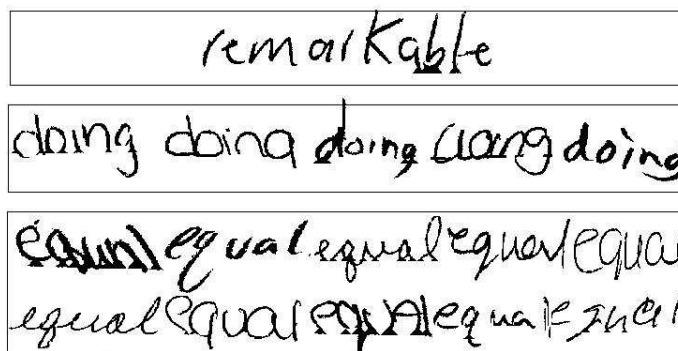 remarkable
doing doing doing doing doing
equal equal equal equal equal
equal equal equal equal equal